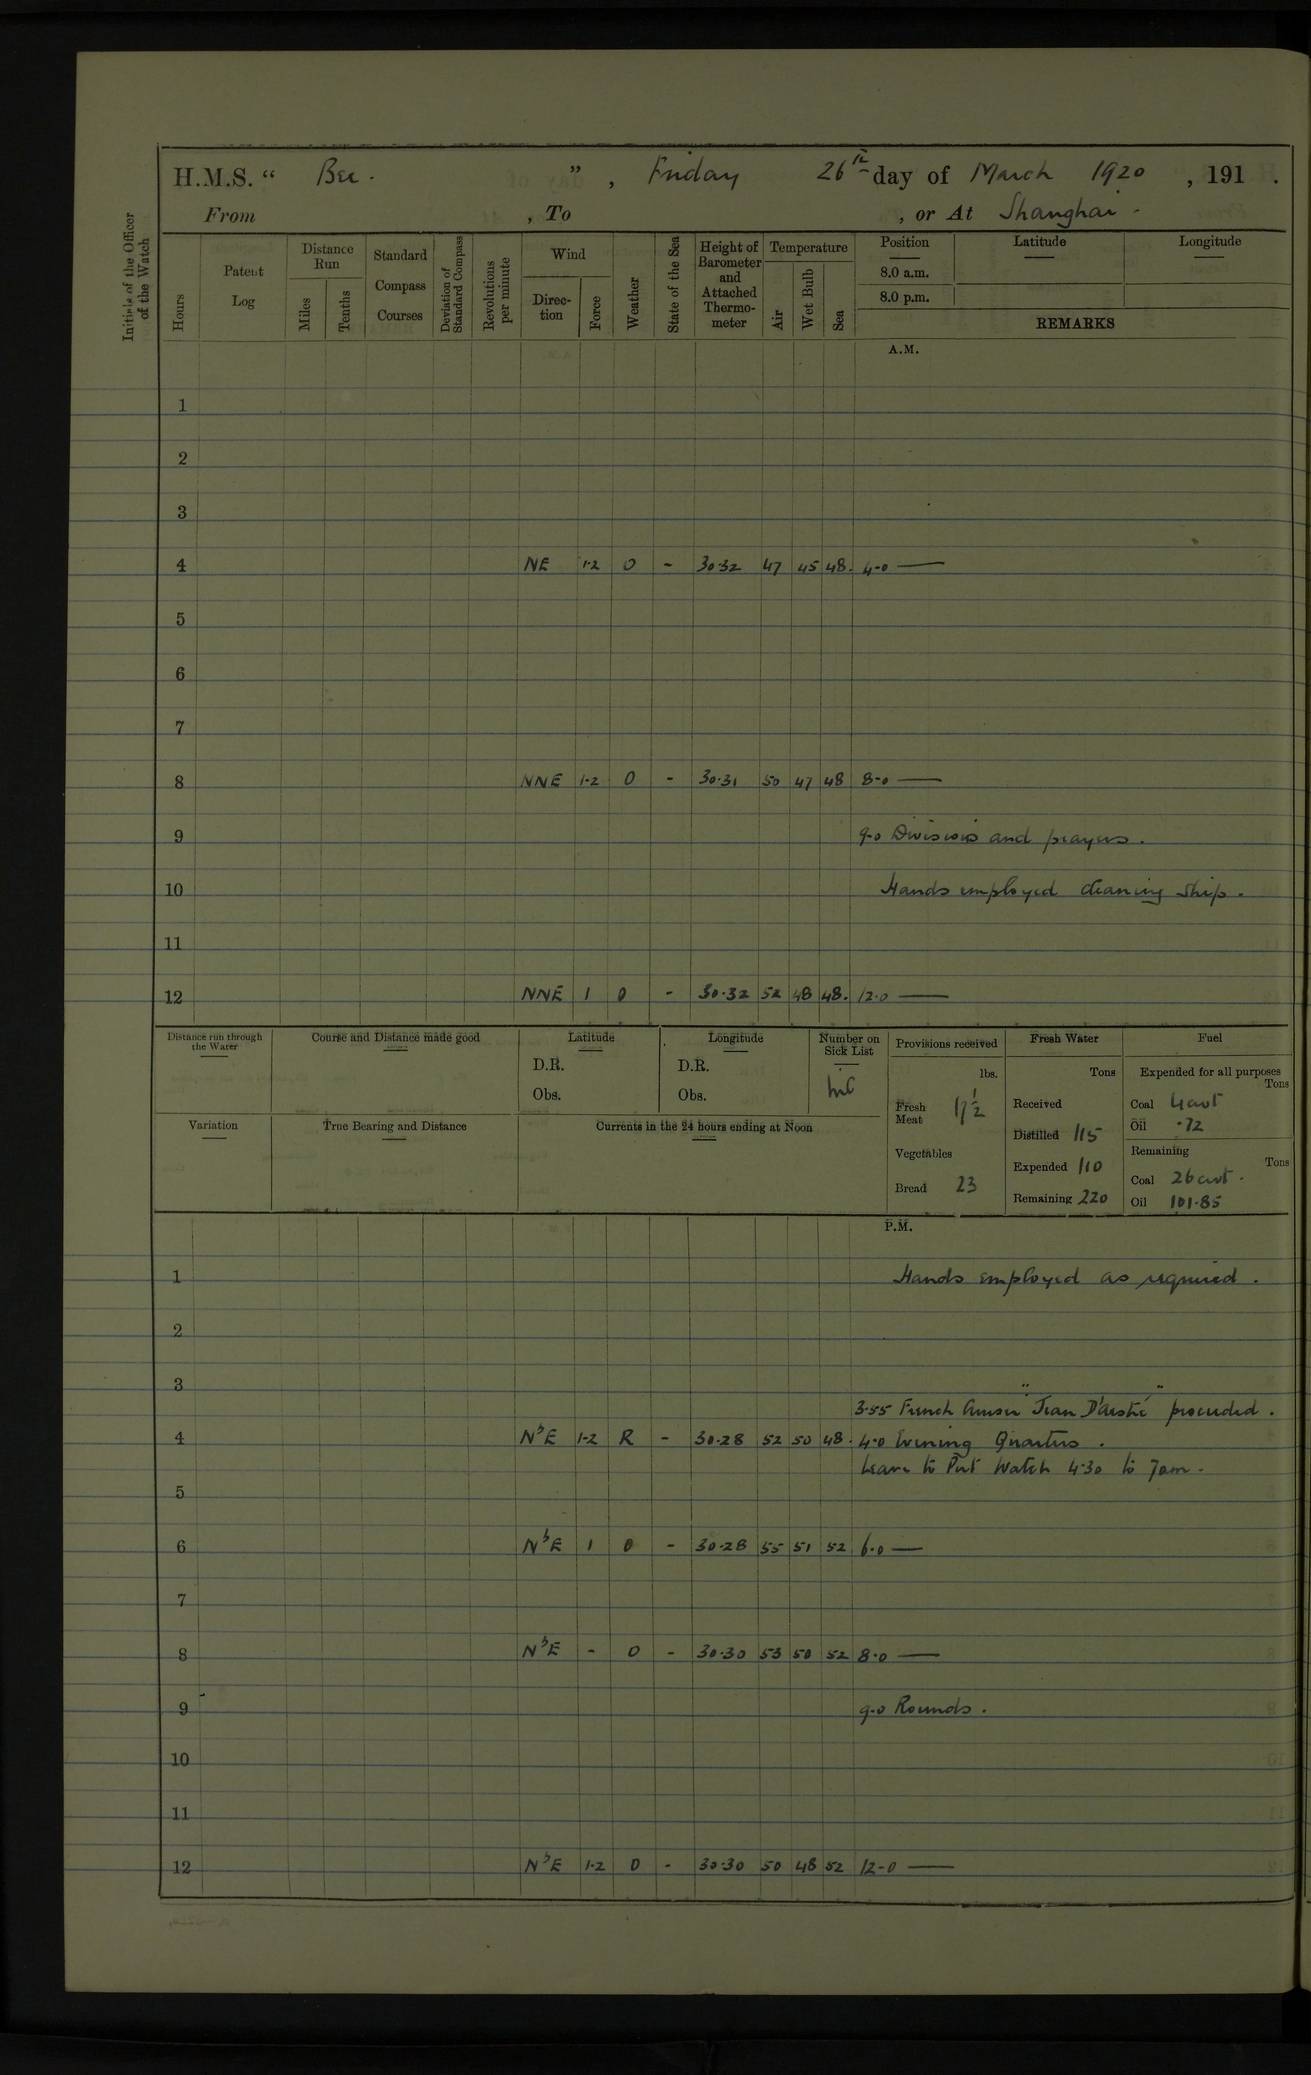 H.M.S. " Bee. " , Friday 26th day of March 1920 , 191 .
From , To , or At Shanghai.
Initials of the Officer of the Watch
Hours
Patent Log
Distance Run
Miles
Tenths
Standard Compass Courses
Deviation of Standard Compass
Revolutions per minute
Wind
Direc-tion
Force
Weather
State of the Sea
Height of Barometer and Attached Thermo-meter
Temperature
Air
Wet Bulb
Sea
Position
Latitude
Longitude
8.0 a.m.
8.0 p.m.
REMARKS
A.M.
1
2
3
4 NE 1-2 O - 30.32 47 45 48. 4-0 —
5
6
7
8 NNE 1-2 O - 30.31 50 47 48 8-0 —
9 9-0 Divisions and prayers.
10 Hands employed cleaning ship.
11
12 NNE 1 O - 30.32 52 48 48. 12.0 —
Distance run through the Water
Course and Distance made good
Latitude
D.R.
Obs.
Longitude
D.R.
Obs.
Number on Sick List
nil
Provisions received
lbs.
Fresh Meat 17 1/2
Vegetables
Bread 23
Fresh Water
Tons
Received
Distilled 115
Expended 110
Remaining 220
Fuel
Expended for all purposes
Tons
Coal 4 cwt
Oil .72
Remaining
Tons
Coal 26 cwt.
Oil 101.85
Variation
True Bearing and Distance
Currents in the 24 hours ending at Noon
P.M.
1 Hands employed as required.
2
3
3-55 French Cruiser "Jean D'arc" proceeded.
4 NbE 1-2 R - 30.28 52 50 48. 4.0 Evening Quarters.
Leave to Port Watch 4.30 to 7am.
5
6 NbE 1 O - 30.28 55 51 52 6.0 —
7
8 NbE - O - 30.30 53 50 52 8.0 —
9 9-0 Rounds.
10
11
12 NbE 1-2 O - 30.30 50 48 52 12-0 —